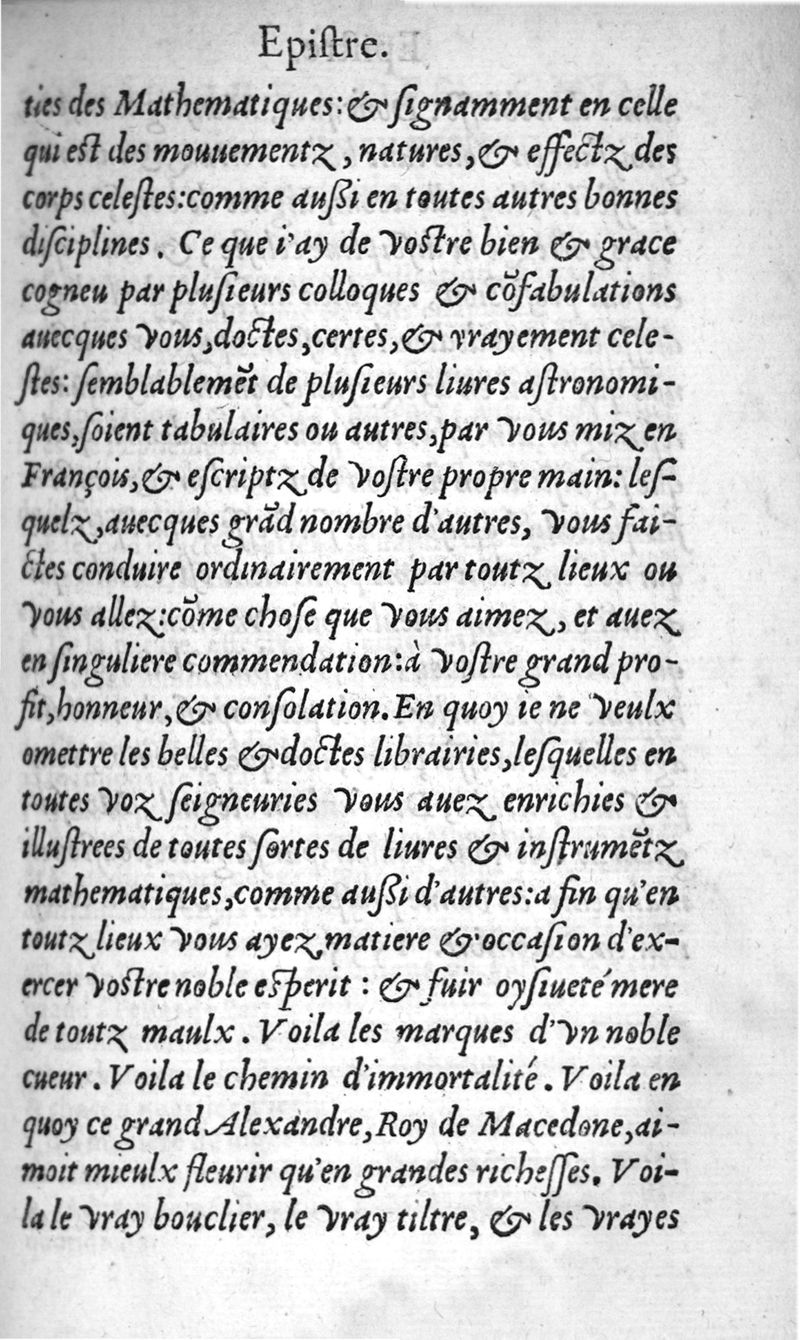 Epiſtre.
ties des Mathematiques: & ſignamment en celle
qui eſt des mouuementz, natures, & effectz des
corps celeſtes: comme auſſi en toutes autres bonnes
diſciplines. Ce que i'ay de voſtre bien & grace
cogneu par pluſieurs colloques & cōfabulations
auecques vous, doctes, certes, & vrayement cele-
ſtes: ſemblablemēt de pluſieurs liures aſtronomi-
ques, ſoient tabulaires ou autres, par vous miz en
François, & eſcriptz de voſtre propre main: leſ-
quelz, auecques grād nombre d'autres, vous fai-
ctes conduire ordinairement par toutz lieux ou
vous allez: cōme choſe que vous aimez, et auez
en ſinguliere commendation: à voſtre grand pro-
fit, honneur, & conſolation. En quoy ie ne veulx
omettre les belles & doctes librairies, leſquelles en
toutes voz ſeigneuries vous auez enrichies &
illuſtrees de toutes ſortes de liures & inſtrumētz
mathematiques, comme auſſi d'autres: a fin qu'en
toutz lieux vous ayez matiere & occaſion d'ex-
ercer voſtre noble eſperit : & fuir oyſiueté mere
de toutz maulx. Voila les marques d'vn noble
cueur. Voila le chemin d'immortalité. Voila en
quoy ce grand Alexandre, Roy de Macedone, ai-
moit mieulx fleurir qu'en grandes richeſſes. Voi-
la le vray bouclier, le vray tiltre, & les vrayes